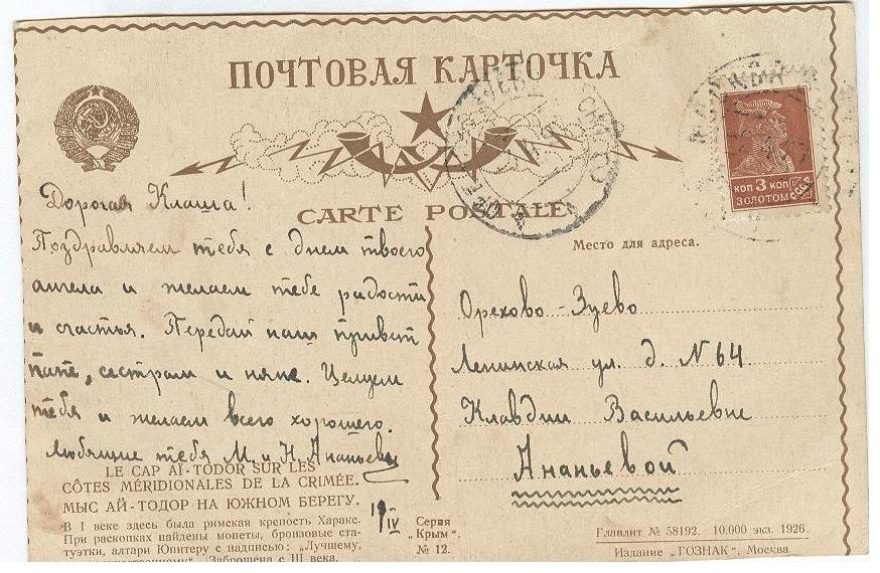 ПОЧТОВАЯ КАРТОЧКА
CARTE POSTALE
КОП 3 КОП
ЗОЛОТОМ
Дорогая Клаша!
Поздравляем тебя с днем твоего
ангела и желаем тебе радости
и счастья. Передай наш привет
папе, сестрам и няне. Целуем
тебя и желаем всего хорошего.
Любящие тебя М. и Н. Ананьевы
19/IV
LE CAP AÏ-TODOR SUR LES
CÔTES MÉRIDIONALES DE LA CRIMÉE.
МЫС АЙ-ТОДОР НА ЮЖНОМ БЕРЕГУ.
В I веке здесь была римская крепость Харакс.
При раскопках найдены монеты, бронзовые ста-
туэтки, алтари Юпитеру с надписью: „Лучшему,
Заброшена с III века.
Серия
„Крым“.
№ 12.
Место для адреса.
Орехово-Зуево
Ленинская ул. д. N 64
Клавдии Васильевне
Ананьевой
Главлит № 58192. 10.000 экз. 1926.
Издание „ГОЗНАК“, Москва.